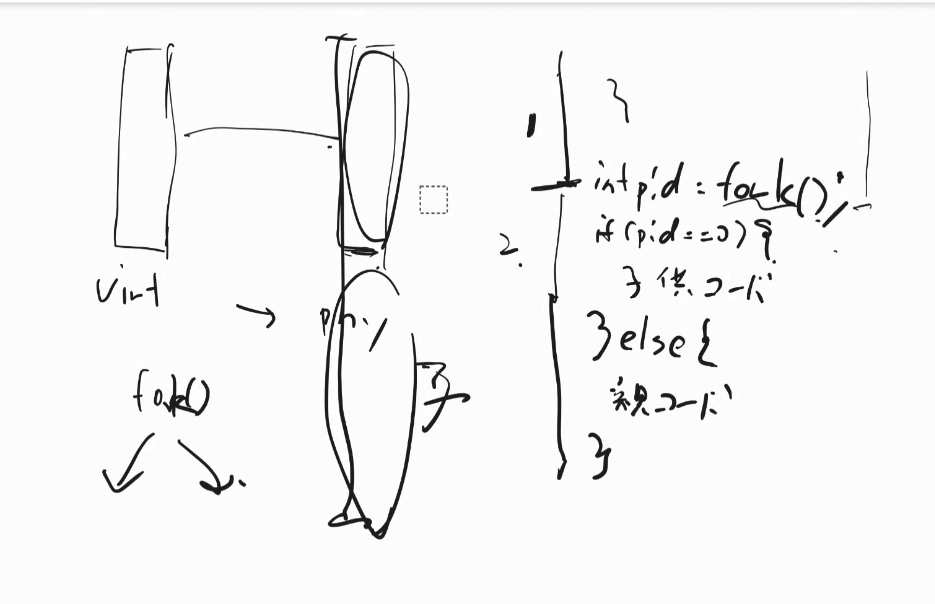 virt
phy
子
fork()
1
}
int pid = fork();
2.
if (pid == 0) {
子供コード
}else{
親コード
}